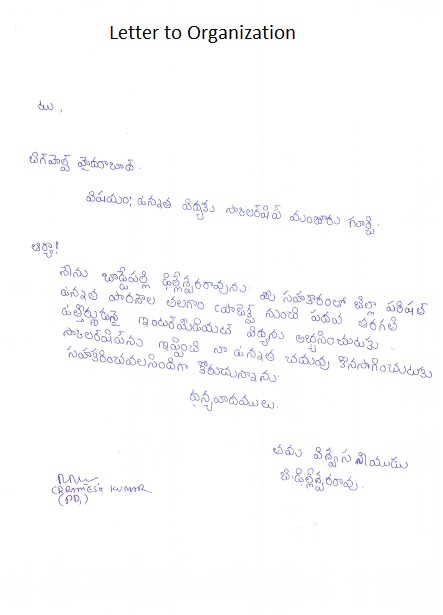 Letter to Organization
టు,
బిగ్‌హెల్ప్ హైదరాబాద్.
విషయం: ఉన్నత విద్యకు స్కాలర్‌షిప్ మంజూరు గూర్చి.
ఆర్యా!
నేను బొడ్డేపల్లి ఢిల్లేశ్వరరావును. మీ సహకారంతో జిల్లా పరిషత్
ఉన్నత పాఠశాల తలగాం నుంచి పదవ తరగతి
ఉత్తీర్ణుడునై ఇంటర్మీడియట్ విద్యను అభ్యసించుటకు
స్కాలర్‌షిప్‌ను ఇప్పించి నా ఉన్నత చదువు కొనసాగించుటకు
సహకరించవలసిందిగా కోరుచున్నాను.
ధన్యవాదములు.
తమ విశ్వసనీయుడు
బి.ఢిల్లేశ్వరరావు.
RAMESH KUMAR
(PD)